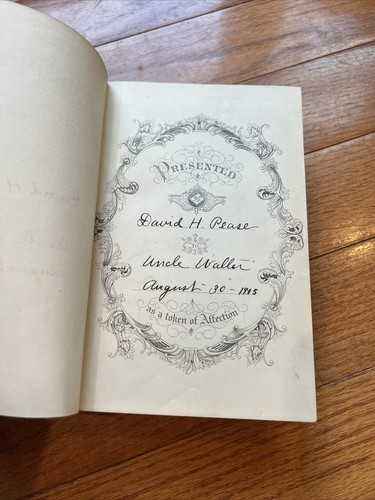 PRESENTED
David H. Pease
Uncle Walter
August 30 - 1915
as a token of Affection